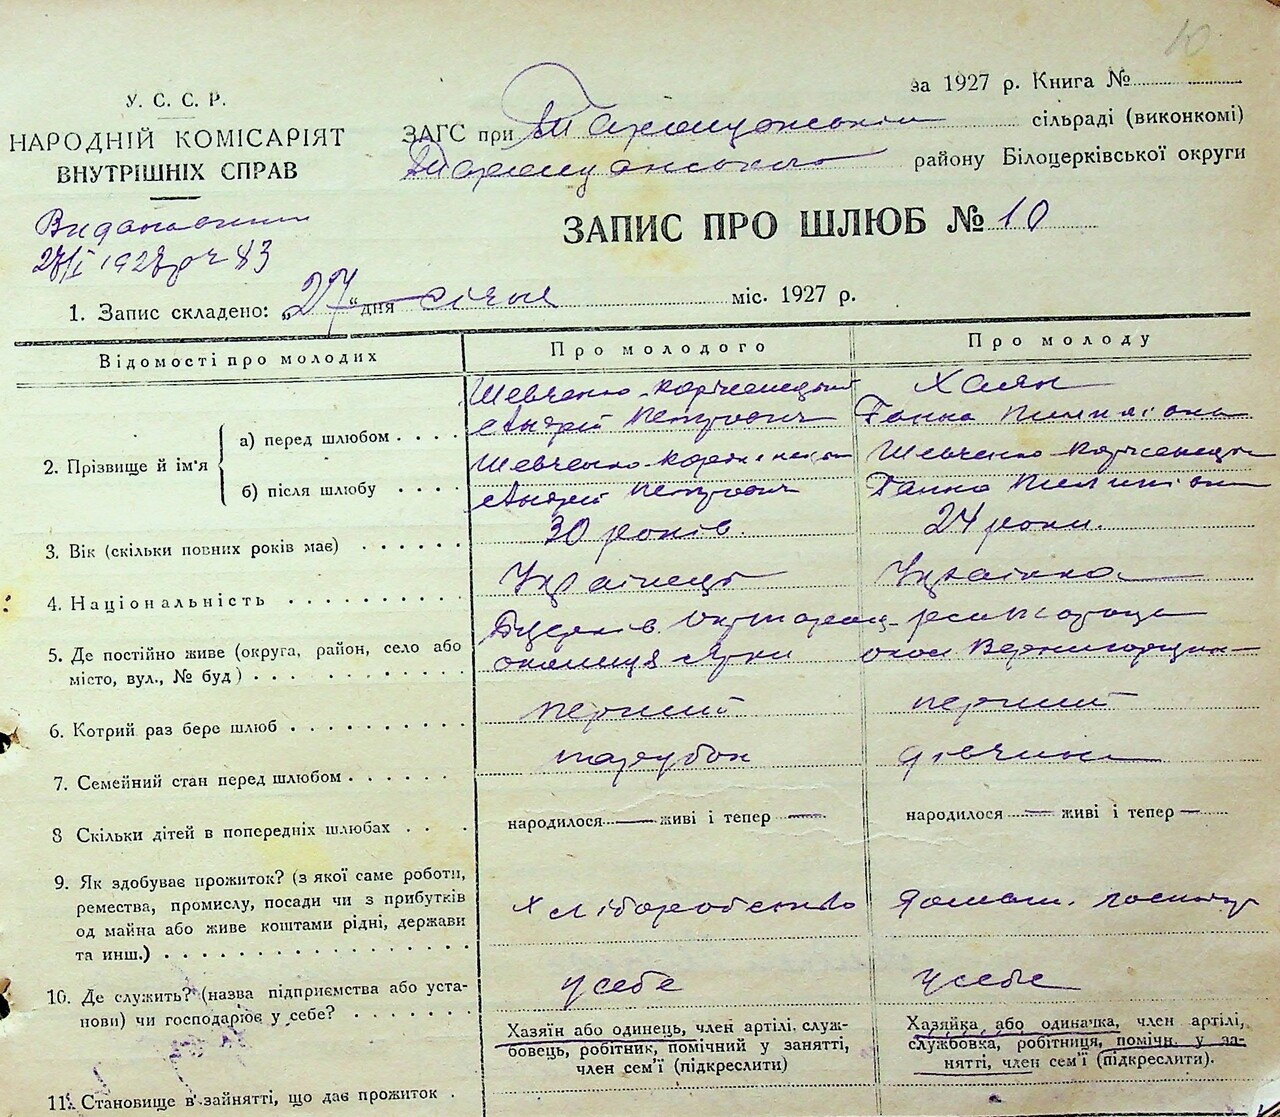 10
У. С. С. Р.
НАРОДНІЙ КОМІСАРІЯТ
ВНУТРІШНІХ СПРАВ
за 1927 р. Книга №
ЗАГС при Таращанській сільраді (виконкомі)
Таращанського району Білоцерківської округи
ЗАПИС ПРО ШЛЮБ № 10
1. Запис складено: „27“ дня січня міс. 1927 р.
Відомості про молодих
Про молодого
Про молоду
2. Прізвище й ім'я
а) перед шлюбом
Шевченко
Андрій Петрович
Ганна
б) після шлюбу
Шевченко
Андрій Петрович
Шевченко
Ганна
3. Вік (скільки повних років має)
30 років.
24 роки.
4. Національність
Українець
Українка
5. Де постійно живе (округа, район, село або
місто, вул., № буд)
околиця Ярки
6. Котрий раз бере шлюб
перший
перший
7. Семейний стан перед шлюбом
парубок
дівчина
8 Скільки дітей в попередніх шлюбах
народилося — живі і тепер —
народилося — живі і тепер —
9. Як здобуває прожиток? (з якої саме роботи,
ремества, промислу, посади чи з прибутків
од майна або живе коштами рідні, держави
та инш.)
хліборобство
домаш. господ
10. Де служить? (назва підприємства або уста-
нови) чи господарює у себе?
у себе
у себе
Хазяїн або одинець, член артілі, служ-
бовець, робітник, помічний у занятті,
член сем'ї (підкреслити)
Хазяйка, або одиначка, член артілі,
службовка, робітниця, помічн. у за-
нятті, член сем'ї (підкреслити).
11. Становище в зайнятті, що дає прожиток